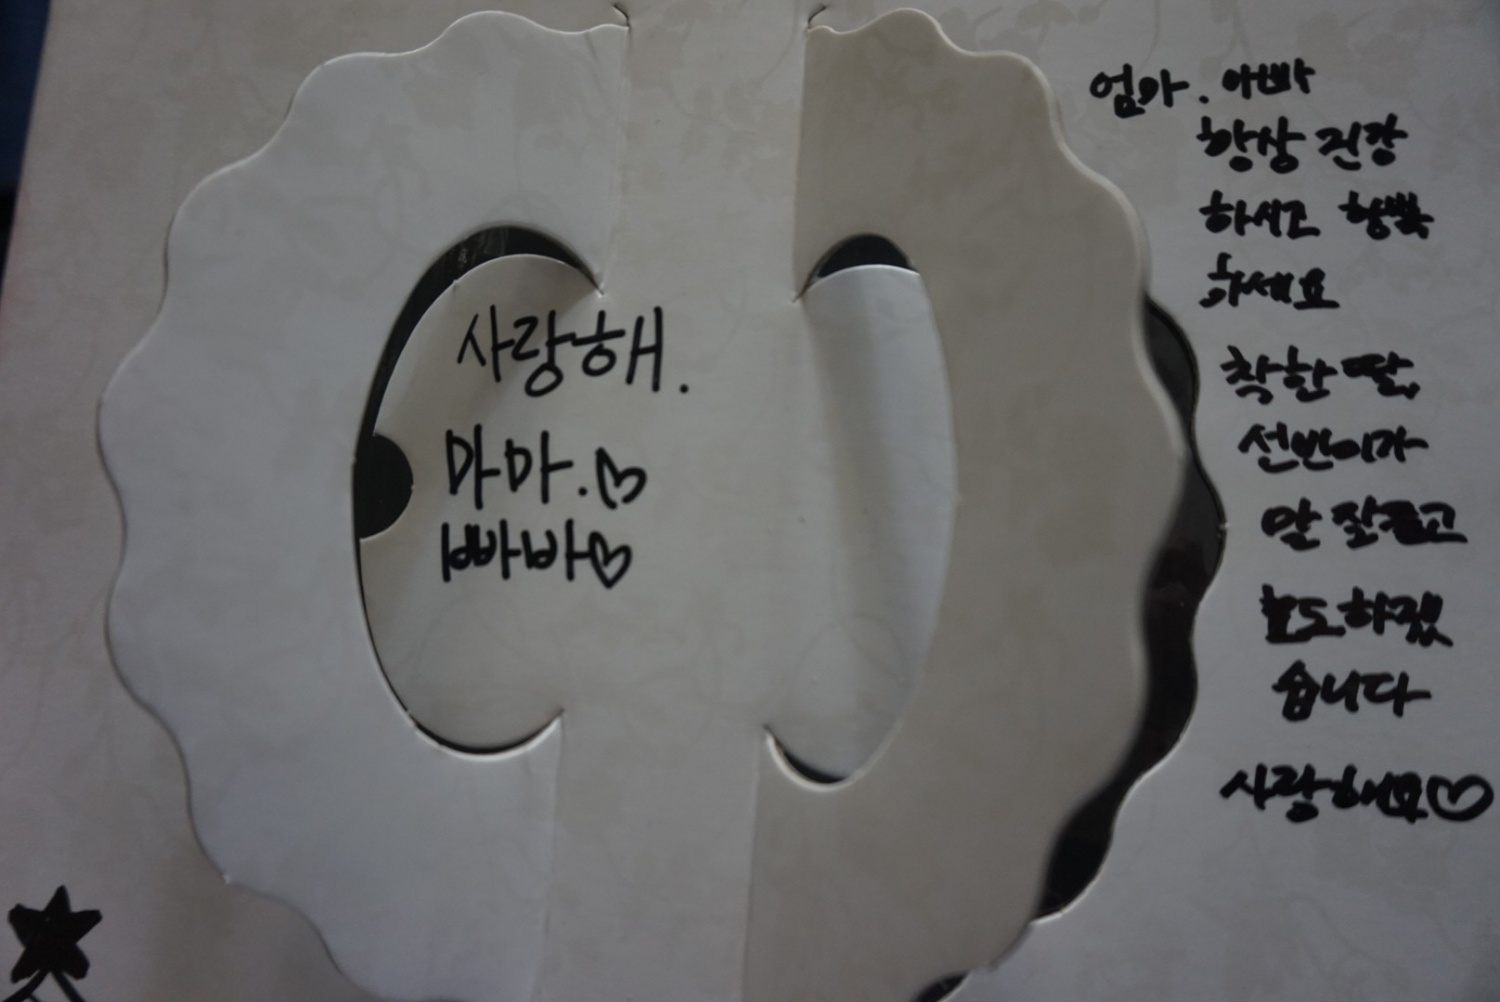 사랑해.
마마.♡
빠빠♡
엄마. 아빠
항상 건강
하시고 행복
하세요
착한 딸,
말 잘듣고
효도하겠
습니다
사랑해요♡